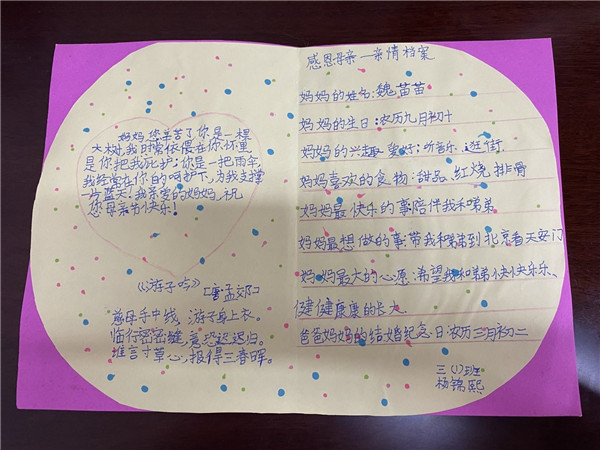 妈妈,您辛苦了,你是一棵
大树,我时常依偎在你怀里
是你把我庇护;你是一把雨伞,
我经常在你的呵护下,为我支撑
一片蓝天;我亲爱的妈妈,祝
您母亲节快乐!
《游子吟》
[唐·孟郊]
慈母手中线,游子身上衣。
临行密密缝,意恐迟迟归。
谁言寸草心,报得三春晖。
感恩母亲—亲情档案
妈妈的姓名:魏苗苗
妈妈的生日:农历九月初十
妈妈的兴趣爱好:听音乐、逛街
妈妈喜欢的食物:甜品、红烧排骨
妈妈最快乐的事陪伴我和弟弟
妈妈最想做的事:带我和弟弟到北京看天安门
妈妈最大的心愿:希望我和弟弟快快乐乐、
健健康康的长大
爸爸妈妈的结婚纪念日:农历三月初二
三(1)班
杨锦熙